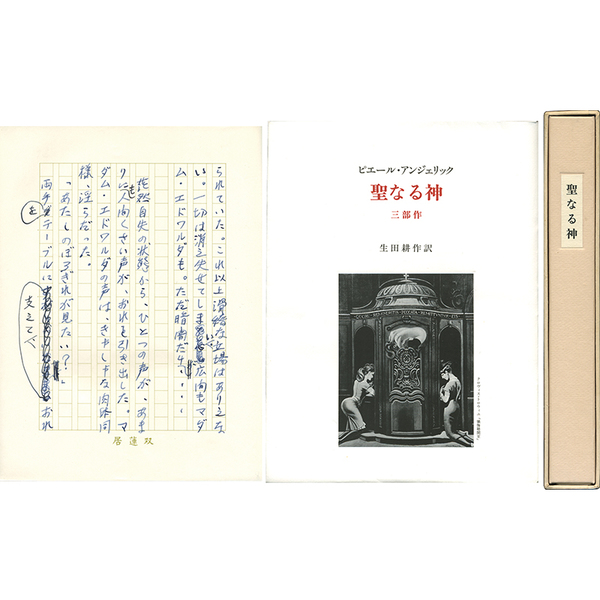 られていた。これ以上滑稽な立場はありえな
い。一切は消え失せてしま広間もマダ
ム・エドワルダも。ただ暗闇だ
茫然自失の状態から、ひとつの声が、あま
りにも人間くさい声が、おれを引き出した。マ
ダム・エドワルダの声は、きゃしゃな肉体同
様、淫らだった。
「あたしのぼろぎれが見たい？」
両手テーブルにおれ
を
支えて
居蓮双
ピエール・アンジェリック
聖なる神
三部作
生田耕作訳
聖なる神